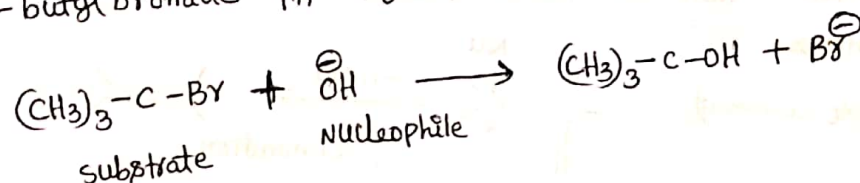 - butyl bromide
(CH3)3-C-Br + ⊖OH ⟶ (CH3)3-C-OH + Br⊖
substrate Nucleophile